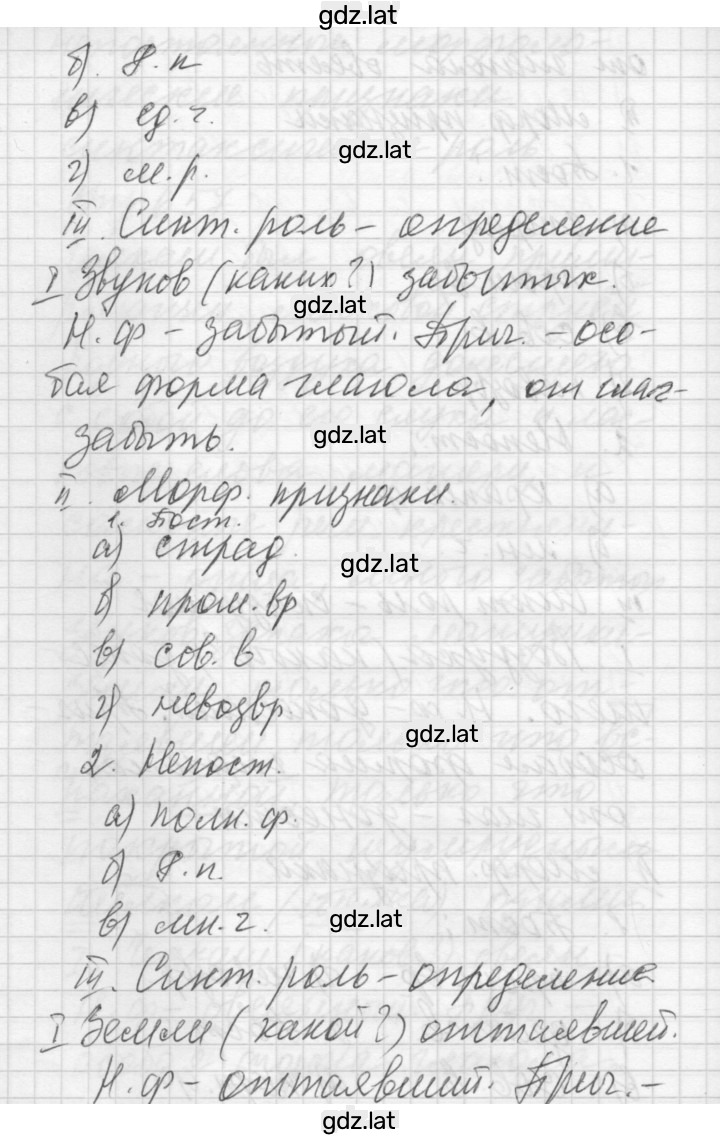 gdz.lat
б). Р.п
в) ед.ч.
gdz.lat
г) м.р.
III. Синт. роль – определение
I Звуков (каких?) забытых.
gdz.lat
Н.ф – забытый. Прич. – осо-
бая форма глагола, от глаг-
забыть.
gdz.lat
II. Морф. признаки.
1. Пост.
а) страд.
gdz.lat
б) прош. вр
в) сов. в
г) невозвр.
gdz.lat
2. Непост.
а) полн. ф.
б) Р.п.
gdz.lat
в) мн.ч.
III. Синт. роль – определение
I Земли (какой?) оттаявшей.
Н.ф – оттаявший. Прич. –
gdz.lat